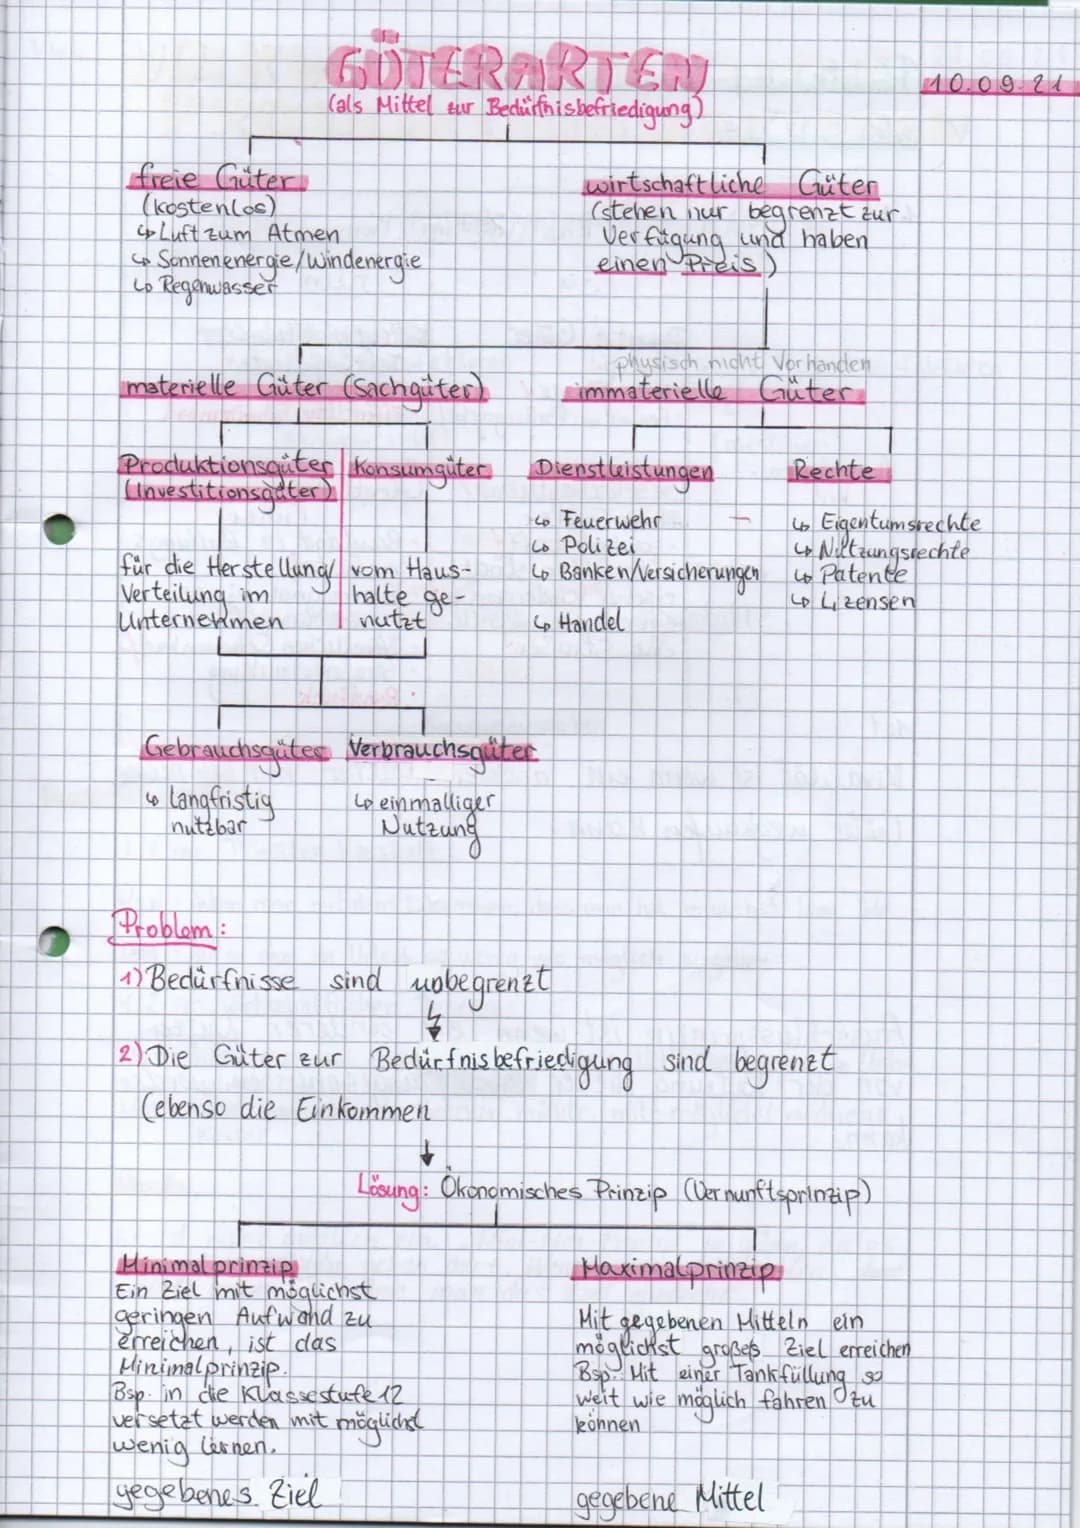 GÜTERARTEN
10.09.21
(als Mittel zur Bedürfnisbefriedigung)
freie Güter
(kostenlos)
↳ Luft zum Atmen
↳ Sonnenenergie/Windenergie
↳ Regenwasser
wirtschaftliche Güter
(stehen nur begrenzt zur
Verfügung und haben
einen Preis)
materielle Güter (Sachgüter)
physisch nicht vorhanden
immaterielle Güter
Produktionsgüter
(Investitionsgüter)
für die Herstellung/
Verteilung im
Unternehmen
Konsumgüter
vom Haus-
halte ge-
nutzt
Dienstleistungen
↳ Feuerwehr
↳ Polizei
↳ Banken/Versicherungen
↳ Handel
Rechte
↳ Eigentumsrechte
↳ Nutzungsrechte
↳ Patente
↳ Lizensen
Gebrauchsgüter
↳ langfristig
nutzbar
Verbrauchsgüter
↳ einmalliger
Nutzung
Problem:
1) Bedürfnisse sind unbegrenzt
2) Die Güter zur Bedürfnisbefriedigung sind begrenzt
(ebenso die Einkommen
Lösung: Ökonomisches Prinzip (Vernunftsprinzip)
Minimalprinzip
Ein Ziel mit möglichst
geringen Aufwand zu
erreichen, ist das
Minimalprinzip.
Bsp. in die Klassestufe 12
versetzt werden mit möglichst
wenig lernen.
gegebenes Ziel
Maximalprinzip
Mit gegebenen Mitteln ein
möglichst großes Ziel erreichen
Bsp. Mit einer Tankfüllung so
weit wie möglich fahren zu
können
gegebene Mittel